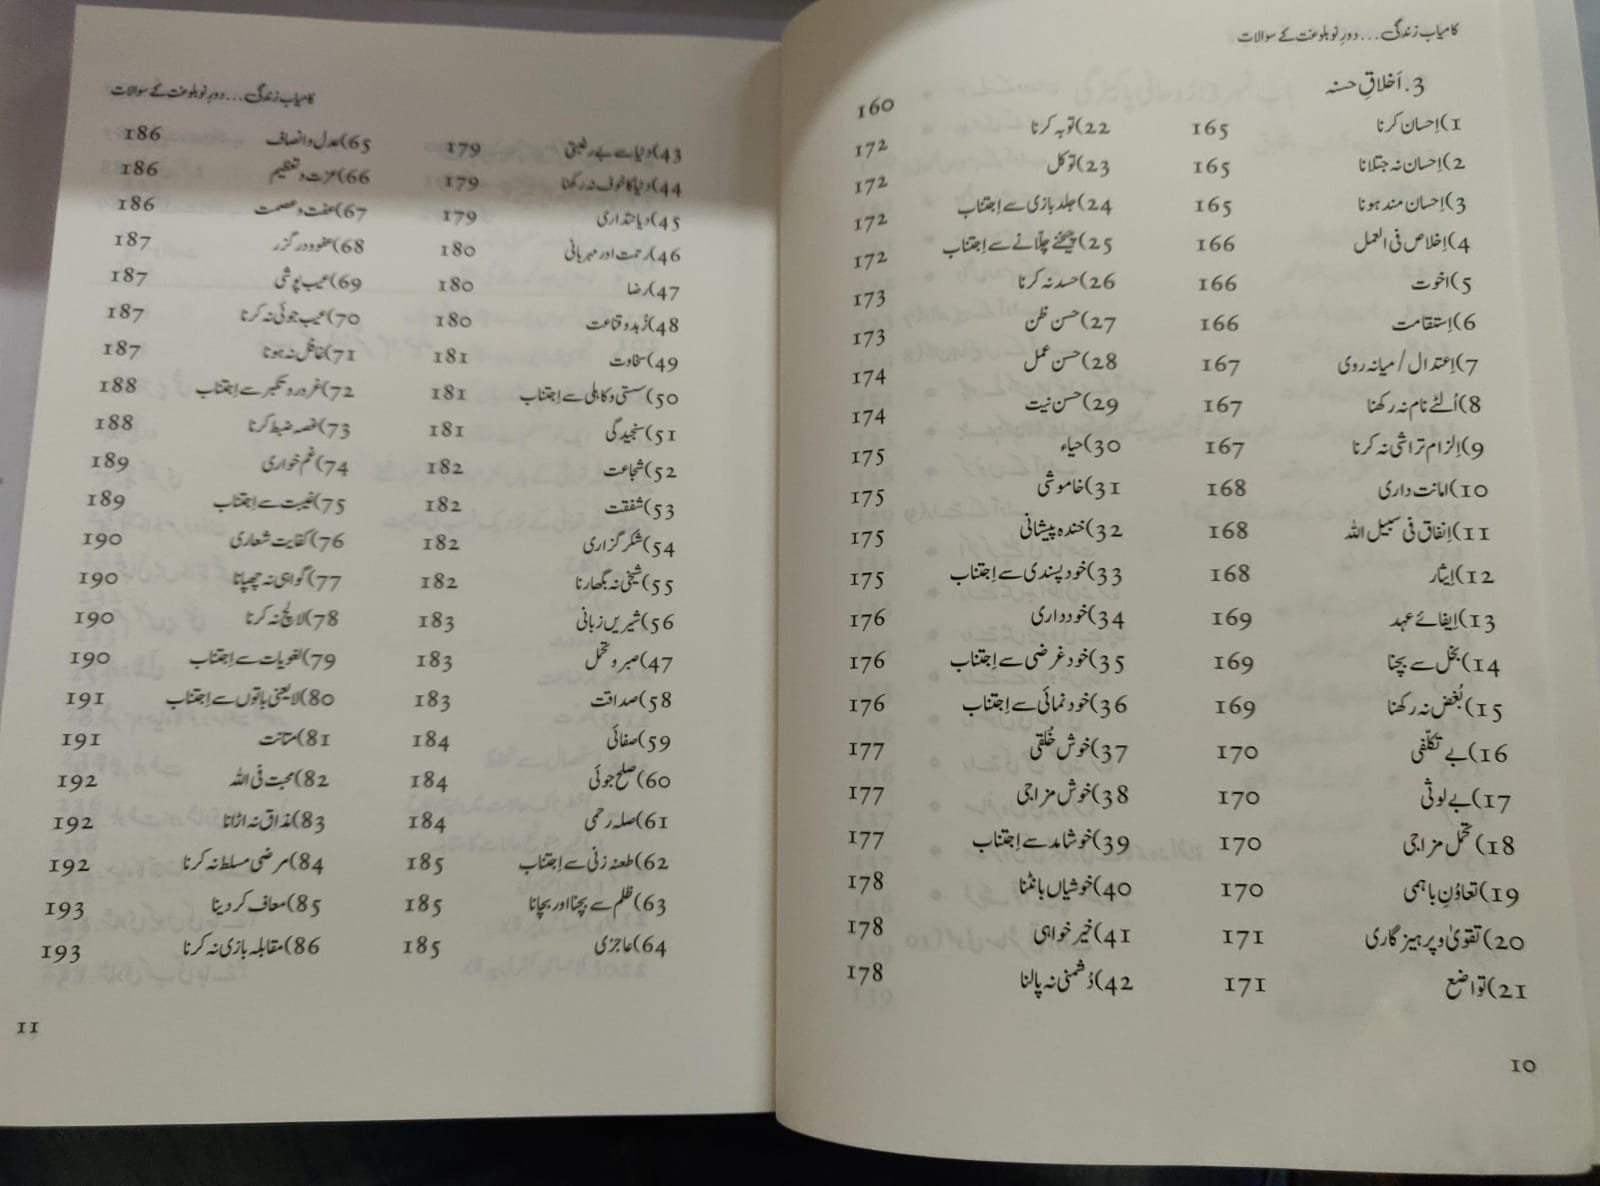 کامیاب زندگی... دورِ نو بلوغت کے سوالات
3. اَخلاقِ حسنہ 160
1) اِحسان کرنا 165
2) اِحسان نہ جتلانا 165
3) اِحسان مند ہونا 165
4) اِخلاص فی العمل 166
5) اخوت 166
6) اِستقامت 166
7) اِعتدال / میانہ روی 167
8) اُلٹے نام نہ رکھنا 167
9) اِلزام تراشی نہ کرنا 167
10) امانت داری 168
11) اِنفاق فی سبیل اللہ 168
12) اِیثار 168
13) اِیفائے عہد 169
14) بخل سے بچنا 169
15) بُغض نہ رکھنا 169
16) بے تکلّفی 170
17) بے لوثی 170
18) تحمل مزاجی 170
19) تعاوُنِ باہمی 170
20) تقویٰ و پرہیزگاری 171
21) تواضع 171
22) توبہ کرنا 172
23) توکل 172
24) جلد بازی سے اِجتناب 172
25) چیخنے چلّانے سے اِجتناب 172
26) حسد نہ کرنا 173
27) حسنِ ظن 173
28) حسن عمل 174
29) حسن نیت 174
30) حیاء 175
31) خاموشی 175
32) خندہ پیشانی 175
33) خود پسندی سے اِجتناب 175
34) خودداری 176
35) خود غرضی سے اِجتناب 176
36) خود نمائی سے اِجتناب 176
37) خوش خُلقی 177
38) خوش مزاجی 177
39) خوشامد سے اِجتناب 177
40) خوشیاں بانٹنا 178
41) خیر خواہی 178
42) دُشمنی نہ پالنا 178
10
کامیاب زندگی... دورِ نو بلوغت کے سوالات
43) دنیا سے بے رغبتی 179
44) دنیا کا خوف نہ رکھنا 179
45) دیانتداری 179
46) رحمت اور مہربانی 180
47) رضا 180
48) زُہد و قناعت 180
49) سخاوت 181
50) سستی و کاہلی سے اِجتناب 181
51) سنجیدگی 181
52) شجاعت 182
53) شفقت 182
54) شکر گزاری 182
55) شیخی نہ بگھارنا 182
56) شیریں زبانی 183
47) صبر و تحمل 183
58) صداقت 183
59) صفائی 184
60) صلح جوئی 184
61) صلہ رحمی 184
62) طعنہ زنی سے اِجتناب 185
63) ظلم سے بچنا اور بچانا 185
64) عاجزی 185
65) عدل و انصاف 186
66) عزت و تعظیم 186
67) عفت و عصمت 186
68) عفو و درگزر 187
69) عیب پوشی 187
70) عیب جوئی نہ کرنا 187
71) غافل نہ ہونا 187
72) غرور و تکبر سے اِجتناب 188
73) غصہ ضبط کرنا 188
74) غم خواری 189
75) غیبت سے اِجتناب 189
76) کفایت شعاری 190
77) گواہی نہ چھپانا 190
78) لالچ نہ کرنا 190
79) لغویات سے اِجتناب 190
80) لایعنی باتوں سے اِجتناب 191
81) متانت 191
82) محبت فی اللہ 192
83) مذاق نہ اڑانا 192
84) مرضی مسلط نہ کرنا 192
85) معاف کر دینا 193
86) مقابلہ بازی نہ کرنا 193
11